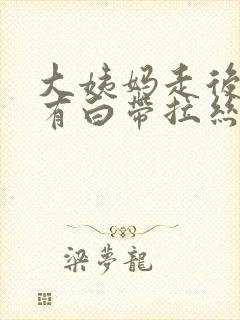 大姨妈走後
有白帶拉絲
梁夢龍